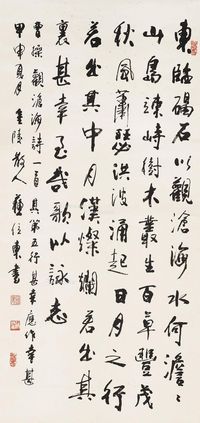 東臨碣石以觀滄海水何澹〻
山島竦峙樹木叢生百草豐茂
秋風蕭瑟洪波涌起日月之行
若出其中月漢燦爛若出其
裏甚幸至哉歌以詠志
曹操觀滄海詩一首其第五行甚幸應作幸甚
甲申夏月金陵散人